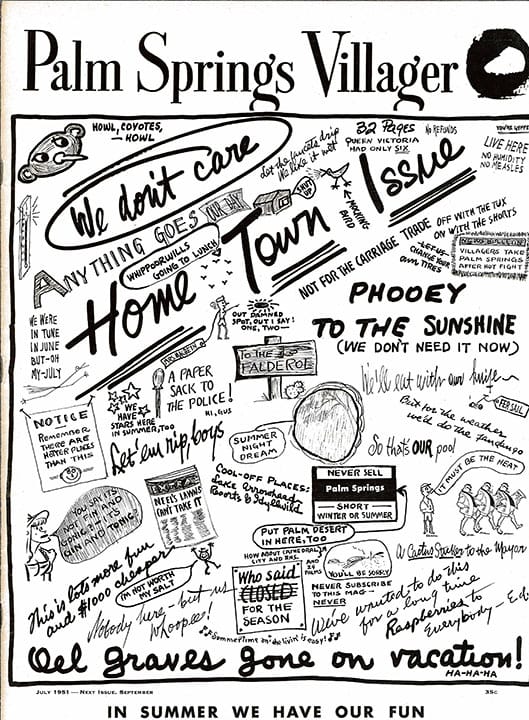 Palm Springs Villager
HOWL, COYOTES,
— HOWL
We don't care
let the faucets drip
We like it wet
32 Pages
QUEEN VICTORIA
HAD ONLY SIX
NO REFUNDS
LIVE HERE
NO HUMIDITY
NO MEASLES
ANYTHING GOES
OUR DAY
Home Town Issue
MOCKING
BIRD
WHIPPOORWILLS
GOING TO LUNCH
NOT FOR THE CARRIAGE TRADE
OFF WITH THE TUX
ON WITH THE SHORTS
LET US
CHANGE YOUR
OWN TIRES
VILLAGERS TAKE
PALM SPRINGS
AFTER HOT FIGHT
WE WERE
IN TUNE
IN JUNE
BUT-OH
MY-JULY
OUT DAMNED
SPOT, OUT I SAY!
ONE, TWO—
PHOOEY
TO THE SUNSHINE
(WE DON'T NEED IT NOW)
TO THE
FALDEROL
A PAPER
SACK TO
THE POLICE!
HI, GUS
WE
HAVE
STARS HERE
IN SUMMER, TOO
We'll eat with our knife—
PEPSALE
But for the weather
we'd do the fandango
NOTICE
REMEMBER
THERE ARE
HOTTER PLACES
THAN THIS
Let 'em rip, boys
SUMMER
NIGHT
DREAM
So that's OUR pool
IT MUST BE THE HEAT
YOU SAY IT'S
COMING IN AND
GONE, IT IT'S
GIN AND TONIC?
NEEL'S LAWNS
CAN'T TAKE IT
COOL-OFF PLACES:
Lake Arrowhead
Resorts & Idyllwild
NEVER SELL
Palm Springs
— SHORT —
WINTER OR SUMMER
PUT PALM DESERT
IN HERE, TOO
HOW ABOUT CATHEDRAL
CITY AND RMS.
AND 29
PALMS
YOU'LL BE SORRY
A Cactus Sucker to the Mayor
This is lots more fun
and $1000 cheaper
I'M NOT WORTH
MY SALT
Nobody here—but us
Whoopee!
Who said
CLOSED
FOR THE
SEASON
NEVER SUBSCRIBE
TO THIS MAG—
NEVER
We've wanted to do this
for a long time
Raspberries to
Everybody — Ed.
Summertime an' the livin' is easy!
Oel Graves gone on vacation!
HA-HA-HA
JULY 1951 — NEXT ISSUE, SEPTEMBER
35c
IN SUMMER WE HAVE OUR FUN